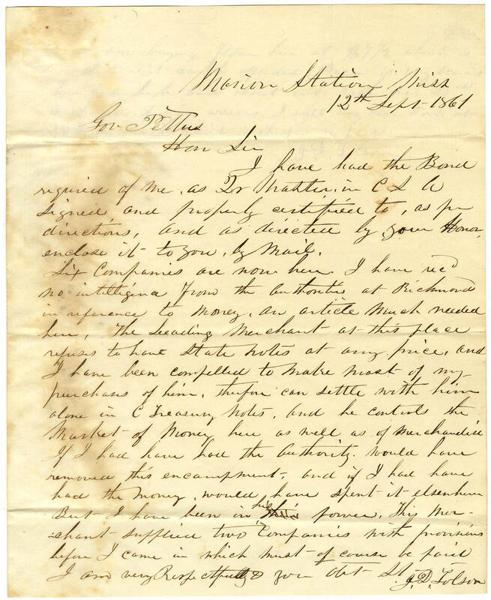 Marion Station Miss
12th Sept 1861
Gov. Pettus
Hon Sir
I have had the Bond
required of me, as Qr Master, in C S A
signed and properly certified to, as pr
directions, and as directed by your Honor,
enclose it to you, by Mail.
Six Companies are now here. I have rec'd
no intelligence from the Authorities at Richmond
in reference to Money, an article Much needed
here, The Leading Merchant at this place
refuses to have State Notes at any price, and
I have been compelled to make most of my
purchases of him, therefore can settle with him
alone in C Treasury Notes, and he controls the
Market of Money here as well as of Merchandise
If I had have had the Authority, would have
removed this encampment, and if I had have
had the Money, would have spent it elsewhere
But I have been in his power, This Mer-
chant supplied two Companies with provisions
before I came in which must of course be paid
I am very Respectfully your obt St
J. D. Tolson